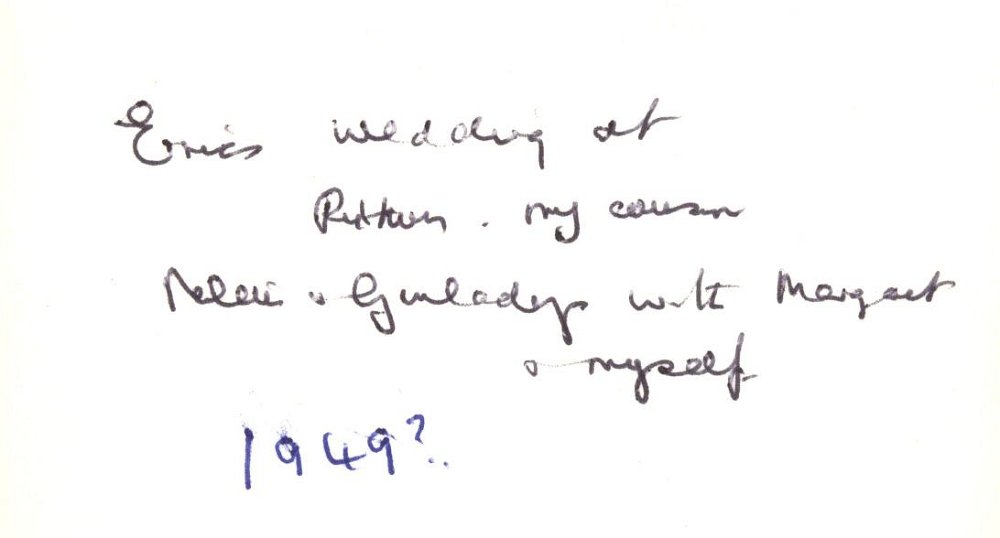 Eric's wedding at
Ruthin. my cousin
Nellie & Gwladys with Margaret
& myself
1949?